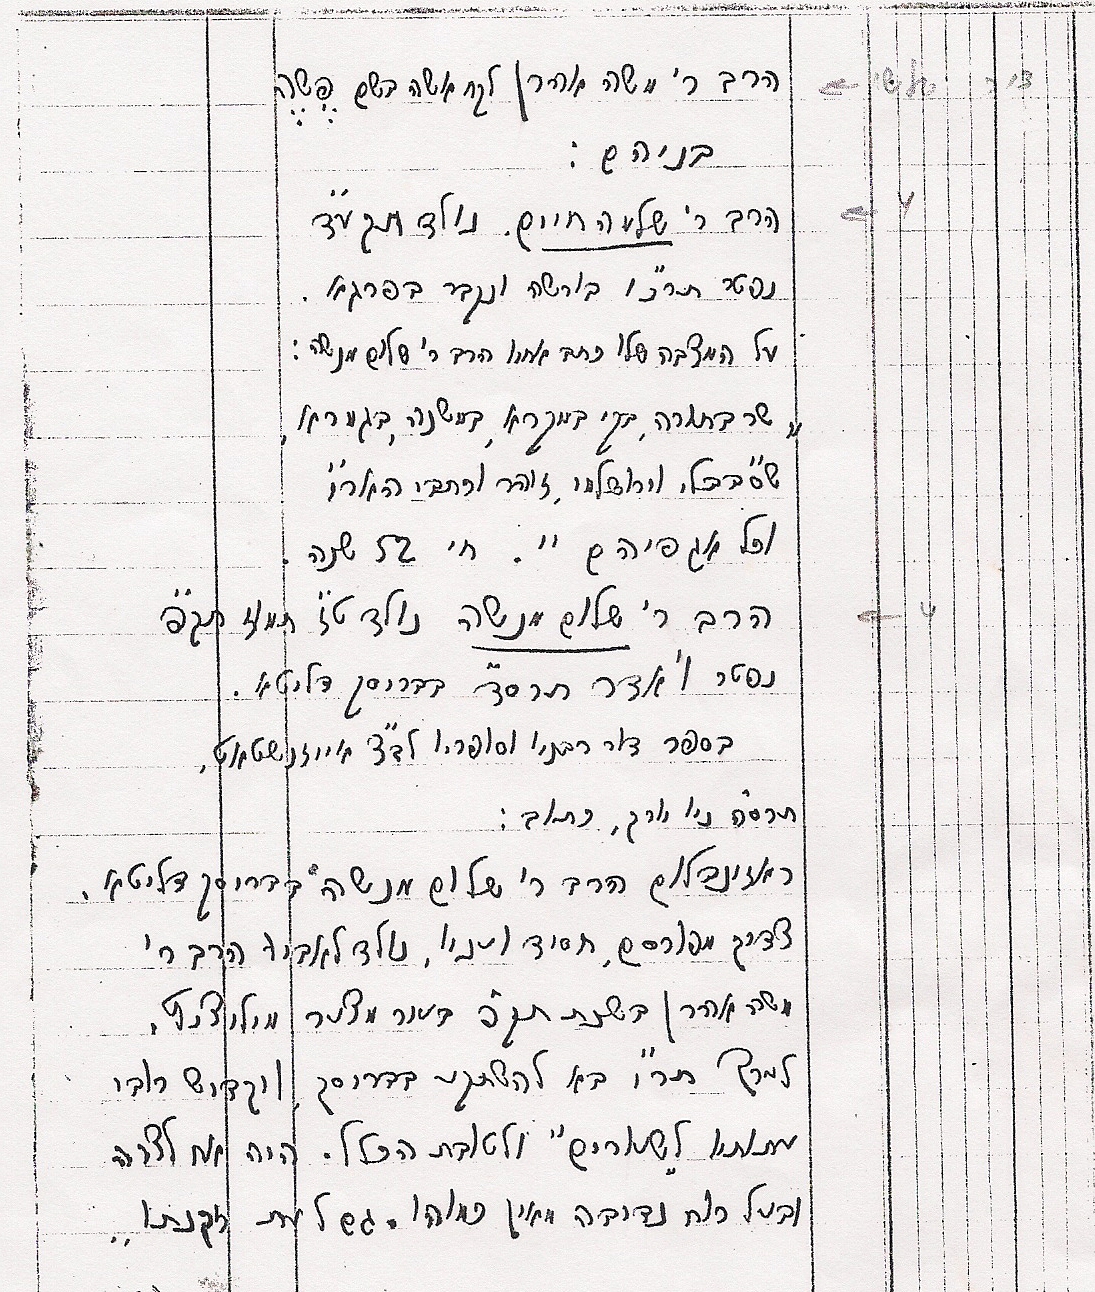 דור שלישי ← הרב ר' משה אהרן לקח אשה בשם פֶשֶה
בניהם :
הרב ר' שלמה חיים. נולד תקע״ד
נפטר תרכ״ו בורשה ונקבר בפרגא.
על המצבה שלו כתב אחיו הרב ר' שלום מנשה:
„שר בתורה, בקי במקרא, במשנה, בגמרא,
ש״ס בבלי וירושלמי, זוהר וכתבי האר״י
וכל אגפיהם ״. חי 52 שנה.
הרב ר' שלום מנשה נולד ט״ז תמוז תק״פ
נפטר ו' אדר תרס״ד בבריסק דליטא.
בספר דור רבניו וסופריו לב״צ אייזנשטאט,
תרס״ה ניו יורק, כתוב:
ראזינבלום הרב ר' שלום מנשה בבריסק דליטא.
צדיק מפורסם, חסיד ועניו, נולד לאביו הרב ר'
משה אהרן בשנת תק״פ בעיר מצער מילייצ׳יץ,
תר״ו בא להשתקע בבריסק, ויקדיש רובי
עתותיו לשעורים״ ולטובת הכלל. היה אח לצרה
ובעל רוח נדיבה מאין כמוהו. גם לעת זקנתו